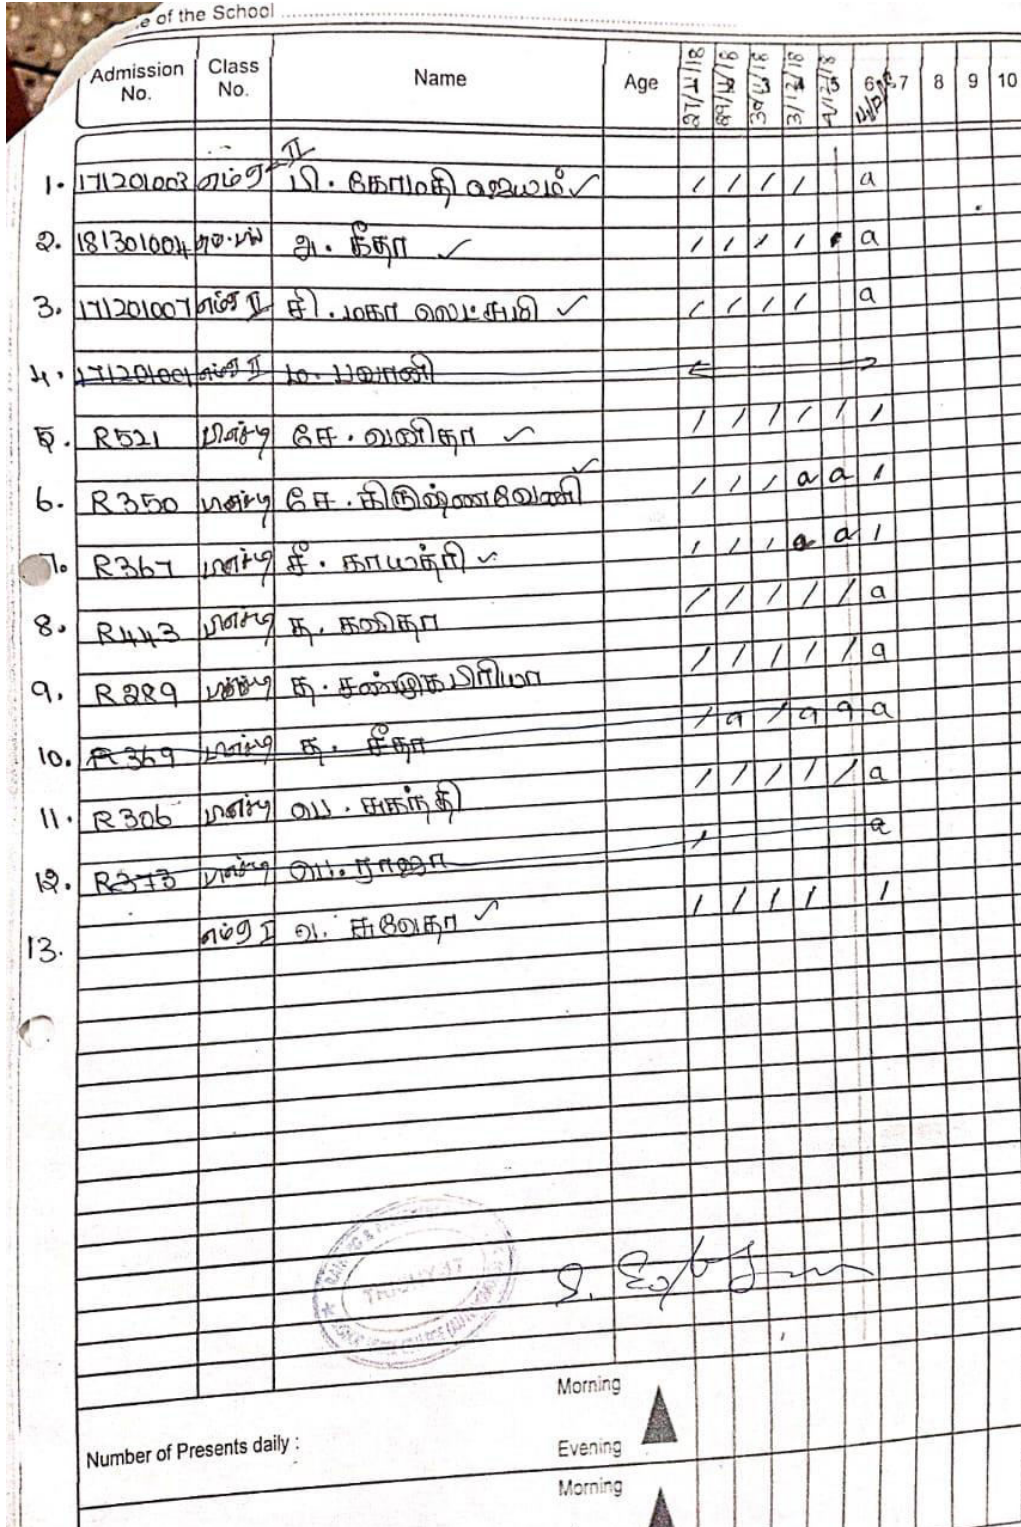 e of the School
Admission No. Class No. Name Age 27/11/18 29/11/18 30/11/18 3/12/18 4/12/18 6 7 8 9 10
1. 171201003 எம்ஏ II பி. கோமதி ஜெயம் ✓ / / / / a
2. 181301004 அ. கீதா ✓ / / / / a
3. 171201007 எம்ஏ II சி. மகா லெட்சுமி ✓ / / / / a
4. 171201001 எம்ஏ II ம. பவானி
5. R521 சே. வனிதா ✓ / / / / / /
6. R350 சே. கிருஷ்ணவேணி ✓ / / / a a /
7. R367 சீ. காயத்ரி ✓ / / / a a /
8. R443 த. கவிதா / / / / / a
9. R289 த. சண்முகபிரியா / / / / / a
10. R369 த. சீதா / a / a a a
11. R306 பெ. சுகந்தி / / / / / a
12. R373 பெ. ராஜா / a
13. எம்ஏ I வ. சுவேதா ✓ / / / / /
Morning
Number of Presents daily :
Evening
Morning